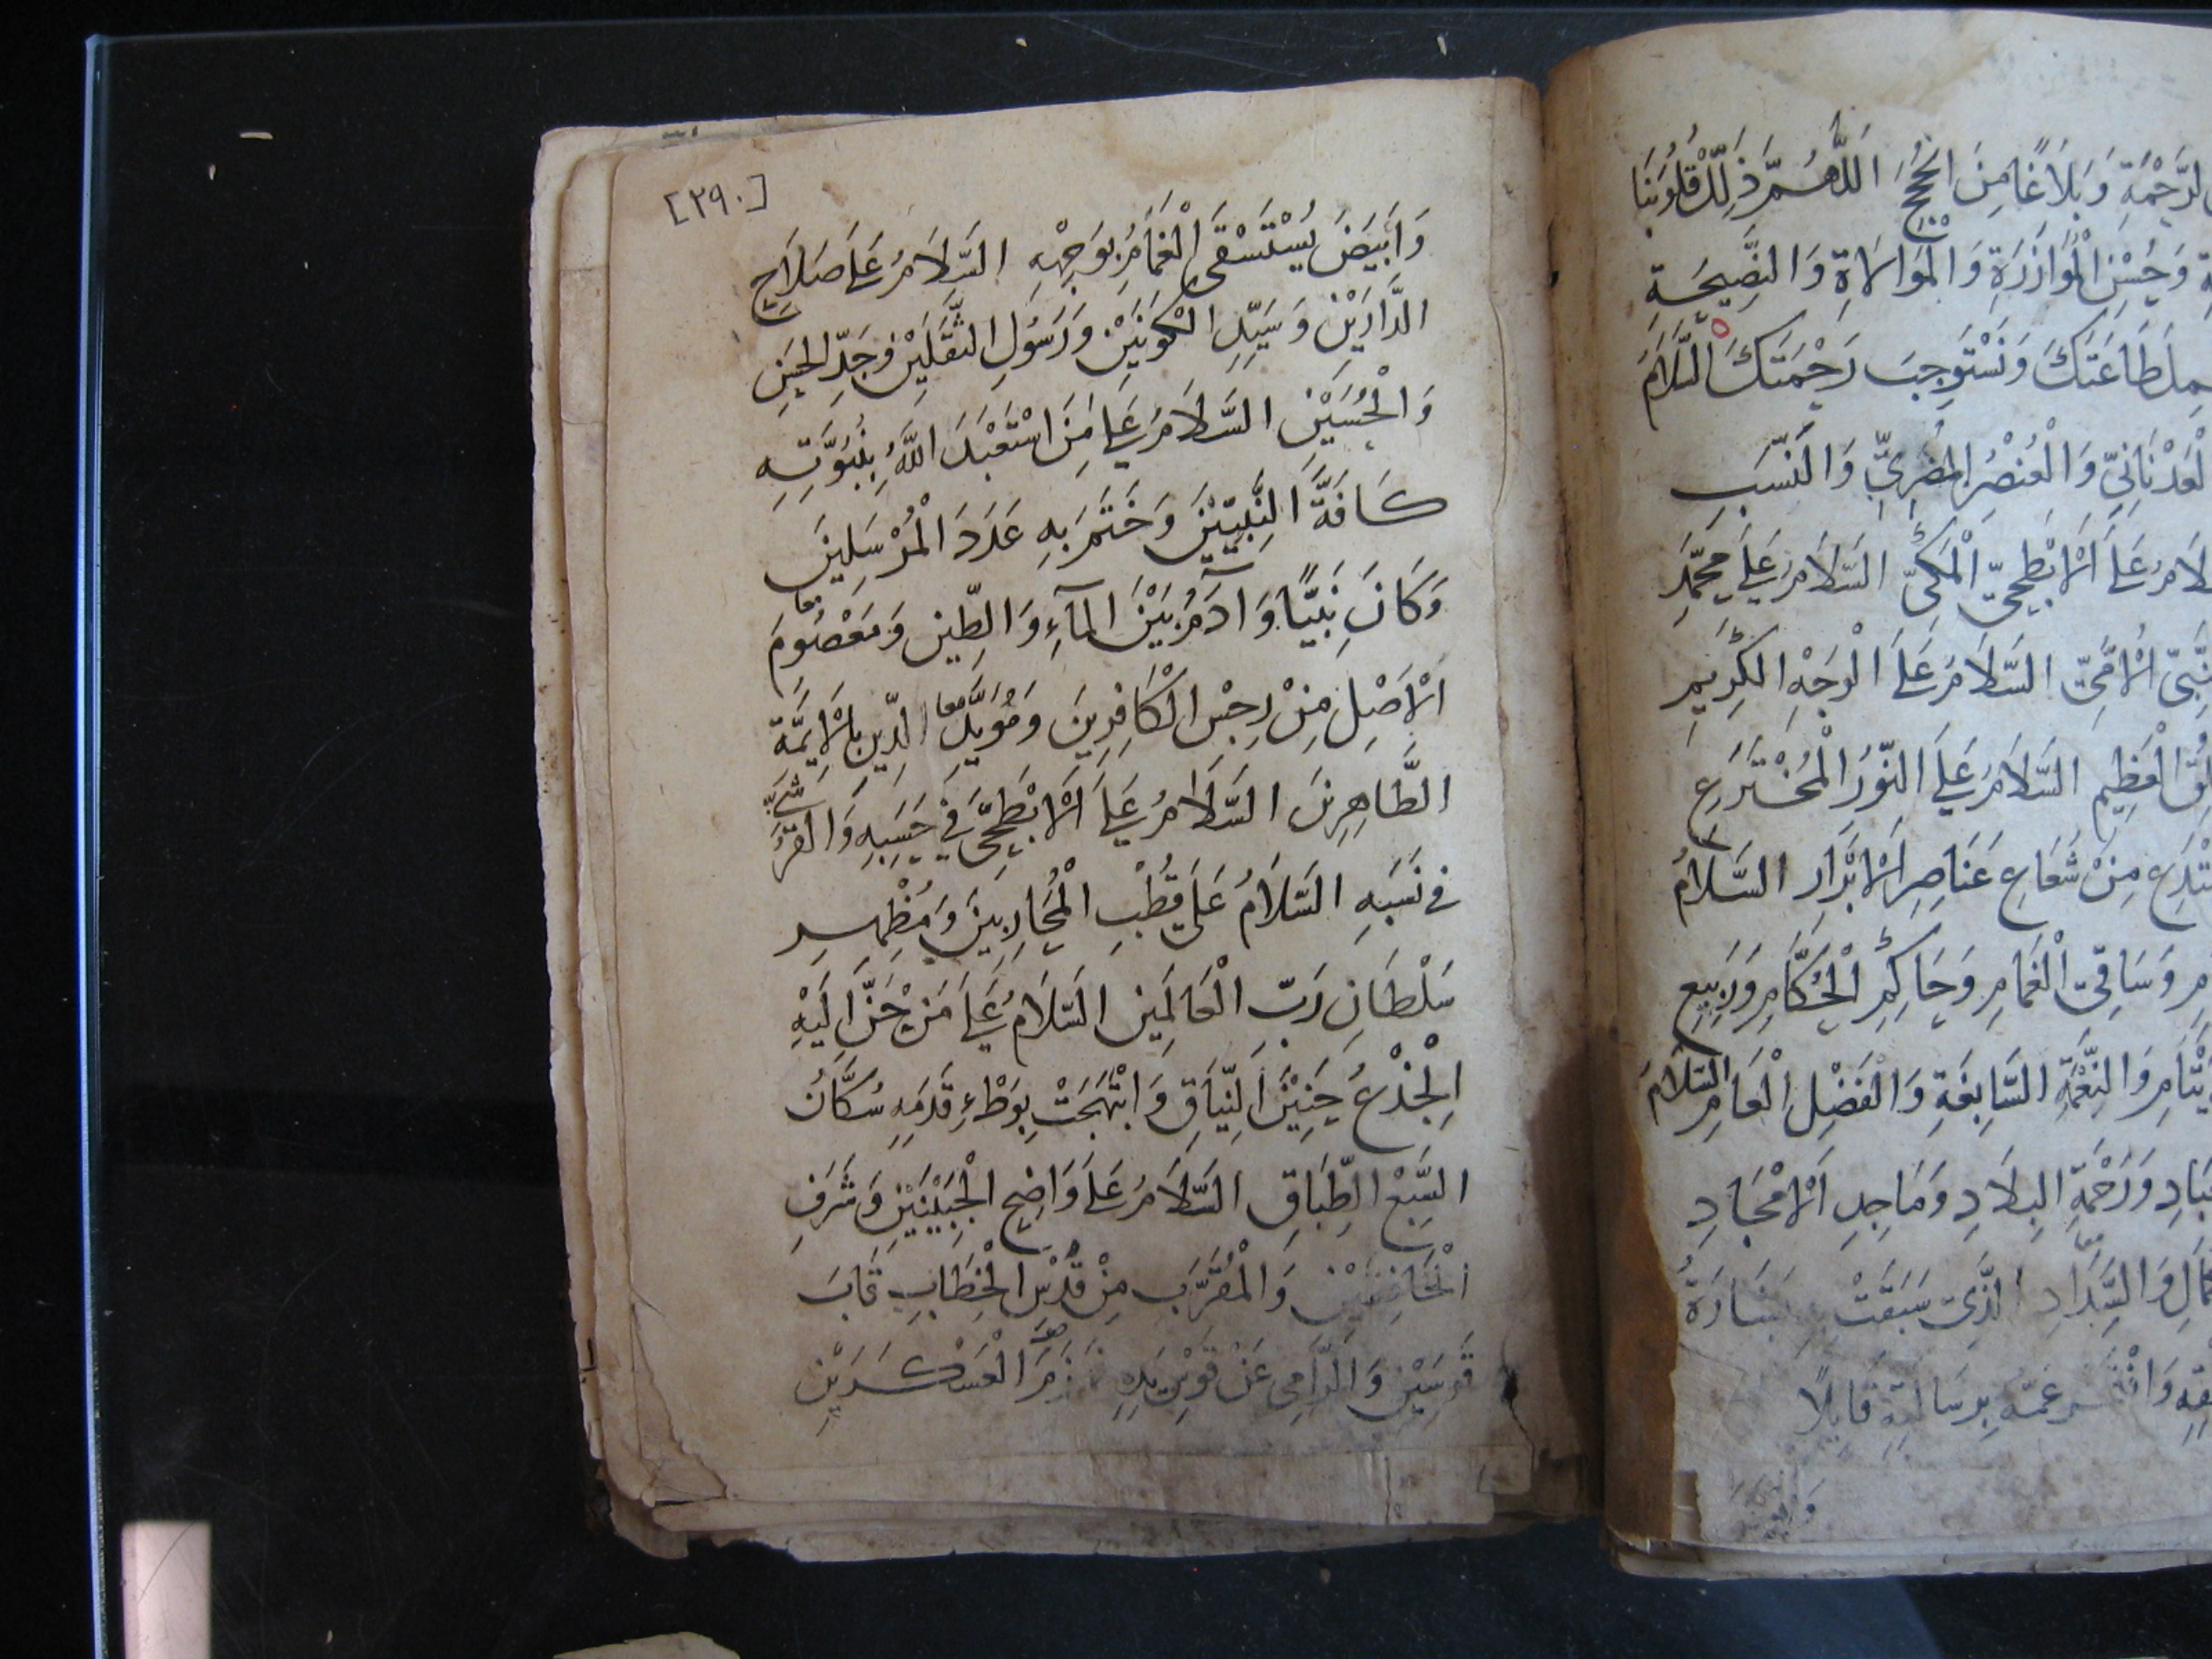 لرَّحْمَةِ وَبَلَاغًا مِنَ الحُجَجِ اللَّهُمَّ ذَلِّلْ قُلُوبَنَا
وَحُسْنِ الْمُوَازَرَةِ وَالْمُوَاسَاةِ وَالنَّصِيحَةِ
لِطَاعَتِكَ وَنَسْتَوْجِبَ رَحْمَتَكَ السَّلَامُ
لْعَدْنَانِيِّ وَالْعُنْصُرِ المُضَرِيِّ وَالنَّسَبِ
لَامُ عَلَى الْأَبْطَحِيِّ الْمَكِّيِّ السَّلَامُ عَلَى مُحَمَّدٍ
نَّبِيِّ الْأُمِّيِّ السَّلَامُ عَلَى الْوَجْهِ الكَرِيمِ
لْعَظِيمِ السَّلَامُ عَلَى النُّورِ الْمُخْتَرَعِ
مِنْ شُعَاعِ عَنَاصِرِ الْأَبْرَارِ السَّلَامُ
وَسَاقِي الْغَمَامِ وَحَاكِمِ الْحُكَّامِ وَرَبِيعِ
وَالنِّعْمَةِ السَّابِغَةِ وَالْفَضْلِ الْعَامِ السَّلَامُ
وَرَحْمَةِ البِلَادِ وَمَاجِدِ الْأَمْجَادِ
وَالسَّدَادِ الَّذِي سَبَقَتْ بِشَارَةُ
بِرِسَالَتِهِ قَايِلًا
[٢٩٠]
وَأَبْيَضَ يُسْتَسْقَى الْغَمَامُ بِوَجْهِهِ السَّلَامُ عَلَى صَلَاحِ
الدَّارَيْنِ وَسَيِّدِ الْكَوْنَيْنِ وَرَسُولِ الثَّقَلَيْنِ وَجَدِّ الحَسَنِ
وَالْحُسَيْنِ السَّلَامُ عَلَى مَنِ اسْتَعْبَدَ اللَّهُ بِنُبُوَّتِهِ
كَافَّةَ النَّبِيِّيْنَ وَخَتَمَ بِهِ عَدَدَ الْمُرْسَلِينَ
وَكَانَ نَبِيًّا وَآدَمُ بَيْنَ المآءِ وَالطِّيْنِ وَمَعْصُومَ
الْأَصْلِ مِنْ رِجْسِ الْكَافِرِينَ وَمُؤَيِّدِ الدِّيْنِ بِالْأَيِمَّةِ
الطَّاهِرِيْنَ السَّلَامُ عَلَى الْأَبْطَحِيِّ فِي حَسَبِهِ وَالقُرَشِيِّ
فِي نَسَبِهِ السَّلَامُ عَلَى قُطْبِ الْمَحَارِبِيْنَ وَمُظْهِرِ
سُلْطَانِ رَبِّ الْعَالَمِيْنَ السَّلَامُ عَلَى مَنْ حَنَّ إِلَيْهِ
الْجِذْعُ حَنِيْنَ النِّيَاقِ وَابْتَهَجَتْ بِوَطْءِ قَدَمِهِ سُكَّانُ
السَّبْعِ الطِّبَاقِ السَّلَامُ عَلَى وَاضِحِ الْجَبِيْنَيْنِ وَشَرَفِ
الْخَافِقَيْنِ وَالْمُقَرَّبِ مِنْ قُدْسِ الْخِطَابِ قَابَ
قَوْسَيْنِ وَالرَّامِي عَنْ قَوْسِ يَدِهِ الْعَسْكَرَيْنِ